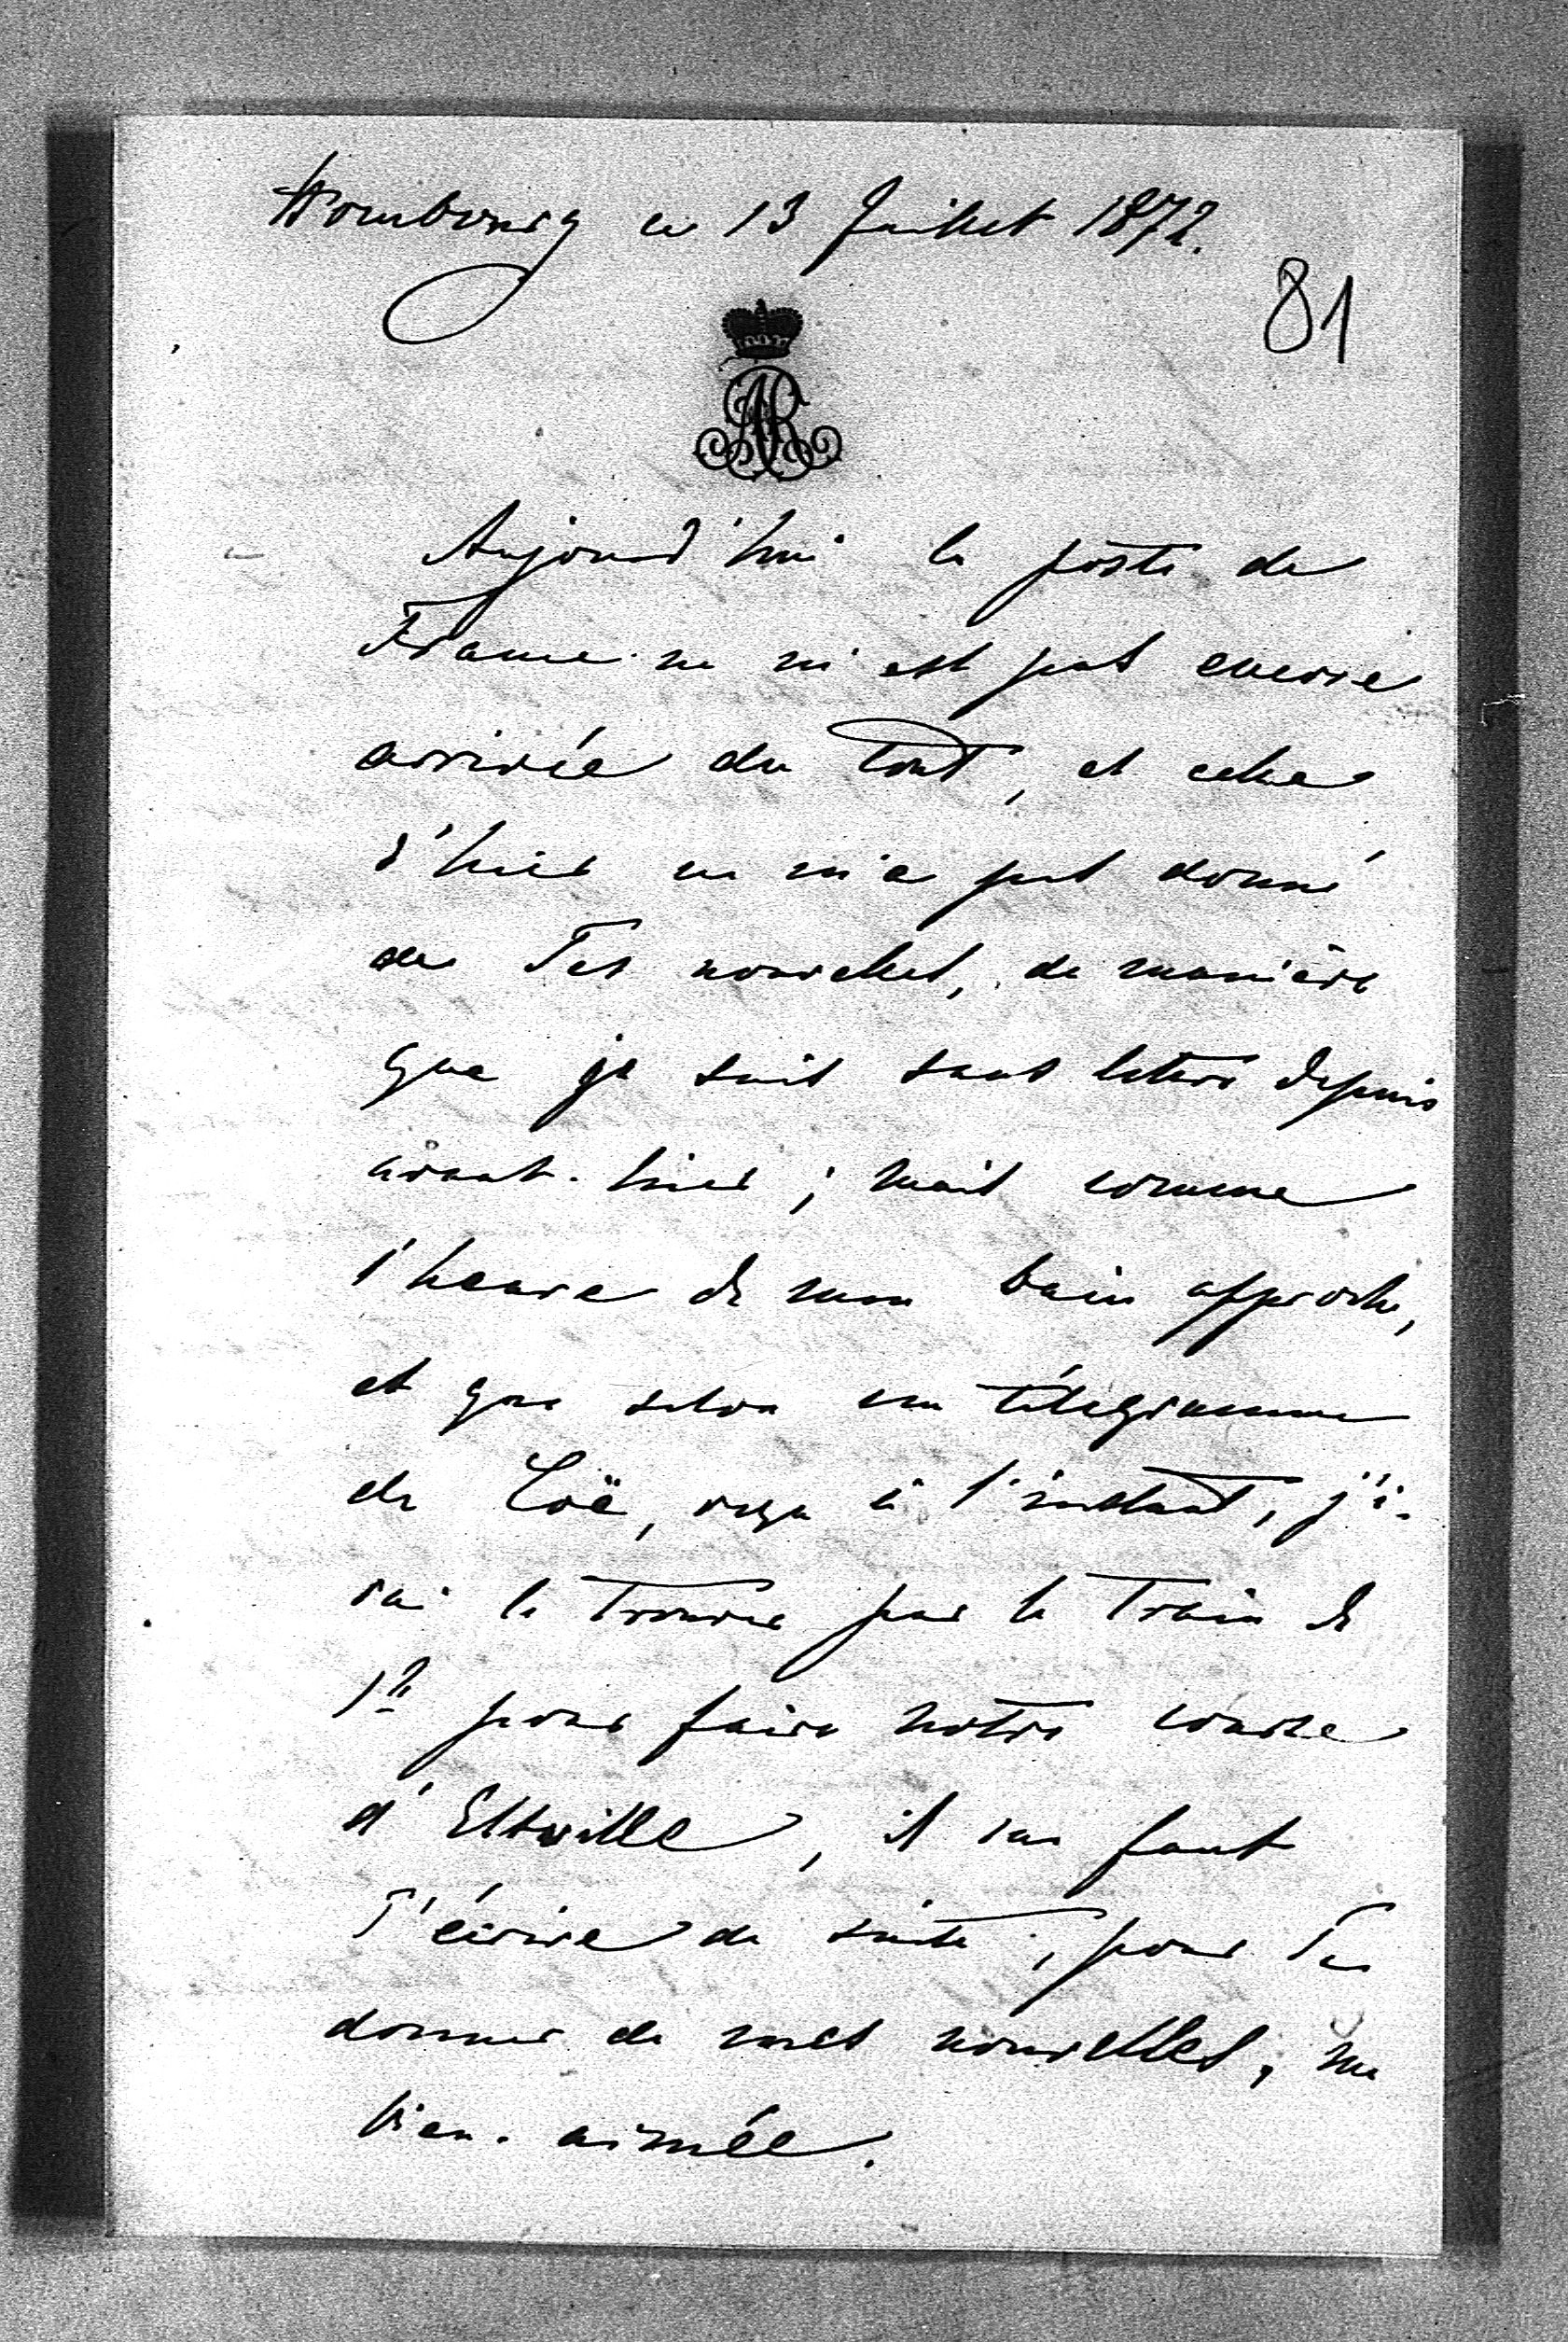 Hombourg ce 13 Juillet 1872.
81
AR
Aujourd'hui la poste de
France ne m'est pas encore
arrivée du tout, et celle
d'hier ne m'a pas donné
de Tes nouvelles, de manière
que je suis sans lettre depuis
avant-hier; mais comme
l'heure de mon bain approche,
et que selon un télégramme
de Loë, reçu à l'instant, j'i-
rai le trouver par le train de
1h pour faire notre course
d'Eltville, il me faut
T'écrire de suite, pour Te
donner de mes nouvelles, ma
bien-aimée.